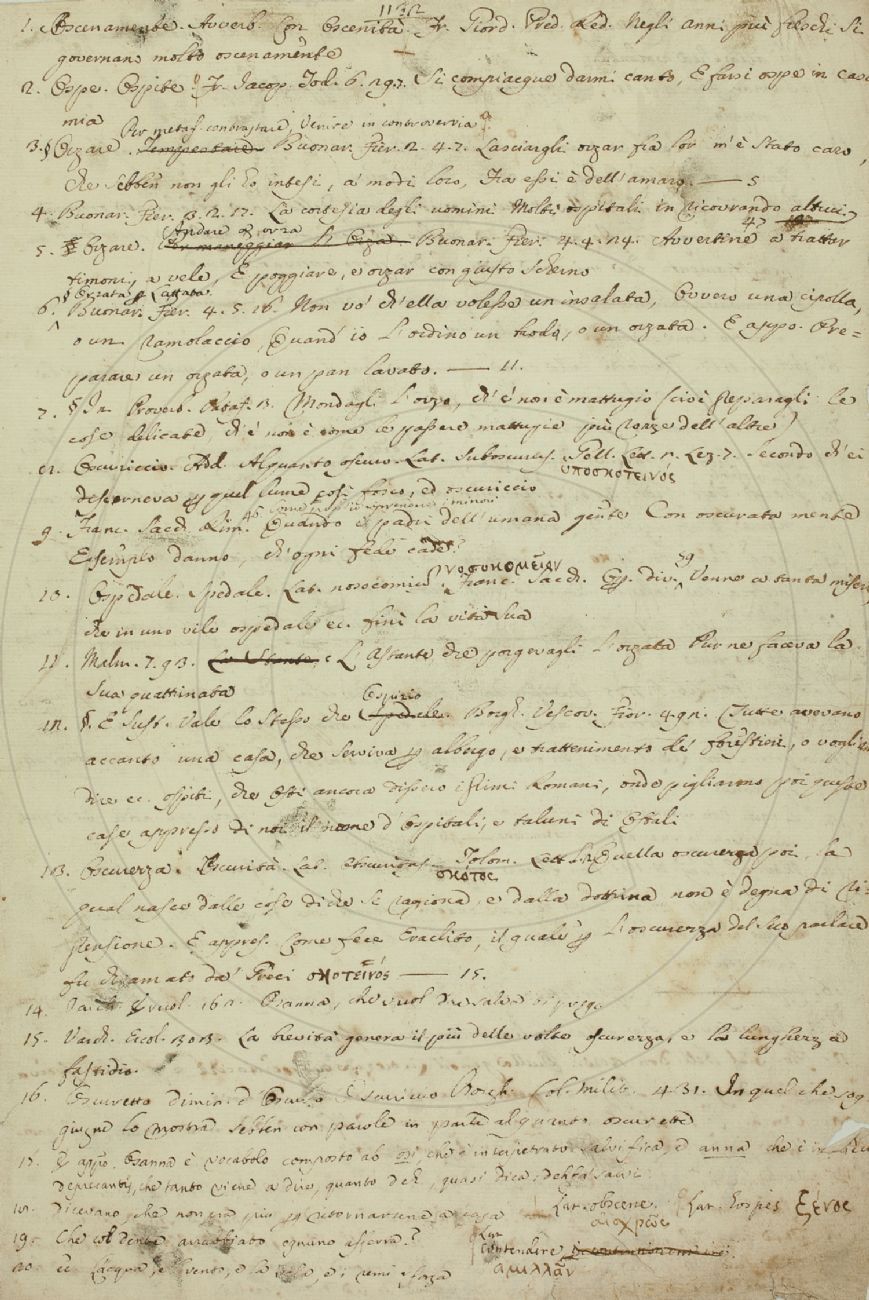 1132
1. Oscenamente. Avverb. Con Oscenità. Fr. Giord. Pred. Red. Negli anni più freschi si
governano molto oscenamente
2. Ospe. Ospite. Fr. Jacop. Tod. 6. 297. Si compiacque darmi canto, E farsi ospe in casa
mia
Per metaf. contrastare, Venire in controversia
3. § Orzare. Tempestare. Buonar. Fier. 2. 4. 7. Lasciargli orzar fra lor m'è stato caro,
che sebben non gli ho intesi, a' modi loro, Fra essi è dell'amaro. — 5
4. Buonar. Fier. 3. 2. 17. La cortesia degli uomini Molti ospitali in ricovrando altrui
Andare ad orza
5. § Orzare. Buonar. Fier. 4. 4. 24. Avvertine a trattar
timoni, a vele, E poggiare, e orzar con giusto scherno
§ Orzata Lattata
6. Buonar. Fier. 4. 5. 16. Non vo' ch'ella volesse un insalata, Ovvero una cipolla,
o un ramolaccio, Quand' io l'ordino un brodo, o un orzata. E appo. Pre=
parare un orzata, o un pan lavato. — 11.
7. § In Proverb. Pataf. 3. Mondagli l'orzo, ch'è non è mattugio (cioè preparagli le
cose delicate, ch'è non è come le passere mattugie più rozze dell'altre)
Oscuriccio. Add. Alquanto oscuro. Lat. Subobscurus. Gell. Lett. 2. Lez. 7. Secondo ch'ei
ὑποσκοτεινός
discerneva quel lume così fosco, ed oscuriccio
9. Franc. Sacch. Rim. 46 Quando i padri dell'umana gente Con oscurata mente
Esemplo danno, ch'ogni fede cade?
νοσοκομεῖον
10. Ospedale. Spedale. Lat. nosocomium. Franc. Sacch. Op. div. 59 Venne a tanta miseria,
che in uno vile ospedale ec. finì la vita sua
11. Malm. 7. 93. L'Astante che porgevagli l'orzata Pur ne faceva la
sua quattinata
Ospizio
12. §. E Sust. Vale lo stesso che Spedale. Borgh. Vescov. Fior. 492. Tutte avevano
accanto una casa, che serviva albergo, e trattenimento de' forestieri, o vogliam
dire ec. ospiti, che ancora dissero i primi Romani, onde pigliarono poi queste
case appresso di noi il nome d'Ospitali, e taluni di Ostili
13. Oscurezza. Oscurità. Lat. obscuritas. Tolom. Lett. Quella oscurezza poi, la
σκότος
qual nasce dalle cose di che si ragiona, e dalla dottrina non è degna di ri=
prensione. E appres. Come fece Eraclito, il quale l'oscurezza del suo parlare
fu chiamato da' Greci σκοτεινός — 15.
14. Osanna, che vuol dire salva
15. Varch. Ercol. 303. La brevità genera il più delle volte oscurezza, e la lunghezza
fastidio.
16. Oscuretto dimin. d'Oscuro Borgh. Col. Milit. 431. In quel che sog
giugne lo mostra sebben con parole in parte alquanto oscurette
E appo. Osanna è vocabolo composto ab osi, che è interpretato salvifica, e anna che è
deprecantis, che tanto viene a dire, quanto quasi dica, dehfa salvi
Dicevano, che non era più ritornarsene a casa Lat. obscene. Lat. hospes ξένος
αἰσχρῶς
19. Che col dente arrabbiato ognuno afferra? Lat.
contendere
ἁμιλλᾶν
20. L'acqua, e 'l vento, e la vela, e i remi sforza